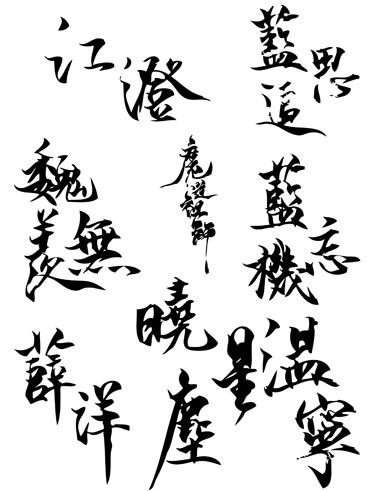 江澄
藍思追
魏無羨
魔道祖師
藍忘機
薛洋
曉星塵
温寧